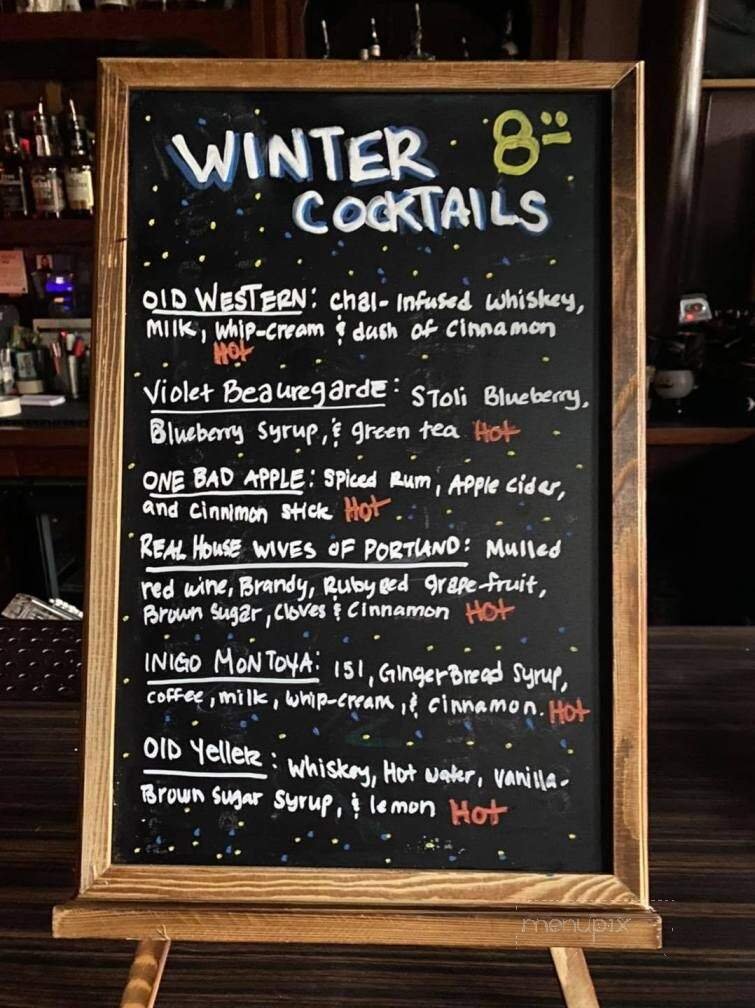 WINTER 8.00
COCKTAILS
OLD WESTERN: Chai-Infused Whiskey,
Milk, Whip-cream & dash of Cinnamon
Hot
Violet Beauregarde: Stoli Blueberry,
Blueberry Syrup, & green tea Hot
ONE BAD APPLE: Spiced Rum, Apple Cider,
and Cinnimon Stick Hot
REAL House WIVES OF PORTLAND: Mulled
red wine, Brandy, Ruby Red grape-fruit,
Brown Sugar, Cloves & Cinnamon Hot
INIGO MONTOYA: 151, GingerBread Syrup,
coffee, milk, whip-cream, & cinnamon. Hot
Old Yeller: Whiskey, Hot water, Vanilla-
Brown Sugar Syrup, & lemon Hot
menupix